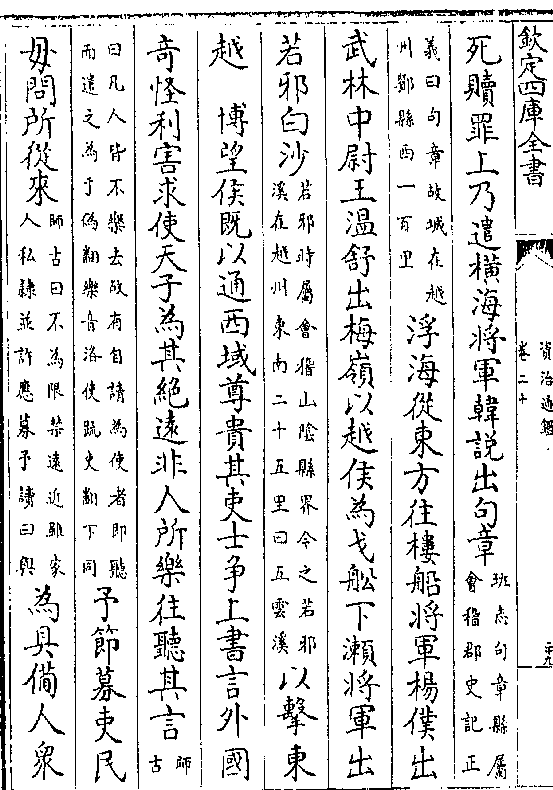 欽定四庫全書
資治通鑑
卷二十
死贖罪上乃遣橫海將軍韓說出句章班志句章縣屬會稽郡史記正
義曰句章故城在越州鄮縣西一百里浮海從東方往樓船將軍楊僕出
武林中尉王溫舒出梅嶺以越侯為戈船下瀨將軍出
若邪白沙若邪時屬會稽山陰縣界今之若邪溪在越州東南二十五里曰五雲溪以擊東
越　博望侯既以通西域尊貴其吏士争上書言外國
奇怪利害求使天子為其絶遠非人所樂往聽其言師古
曰凡人皆不樂去故有自請為使者即聽而遣之為于偽翻樂音洛使疏吏翻下同予節募吏民
毋問所從來師古曰不為限禁遠近雖家人私隸並許應募予讀曰與為具備人衆